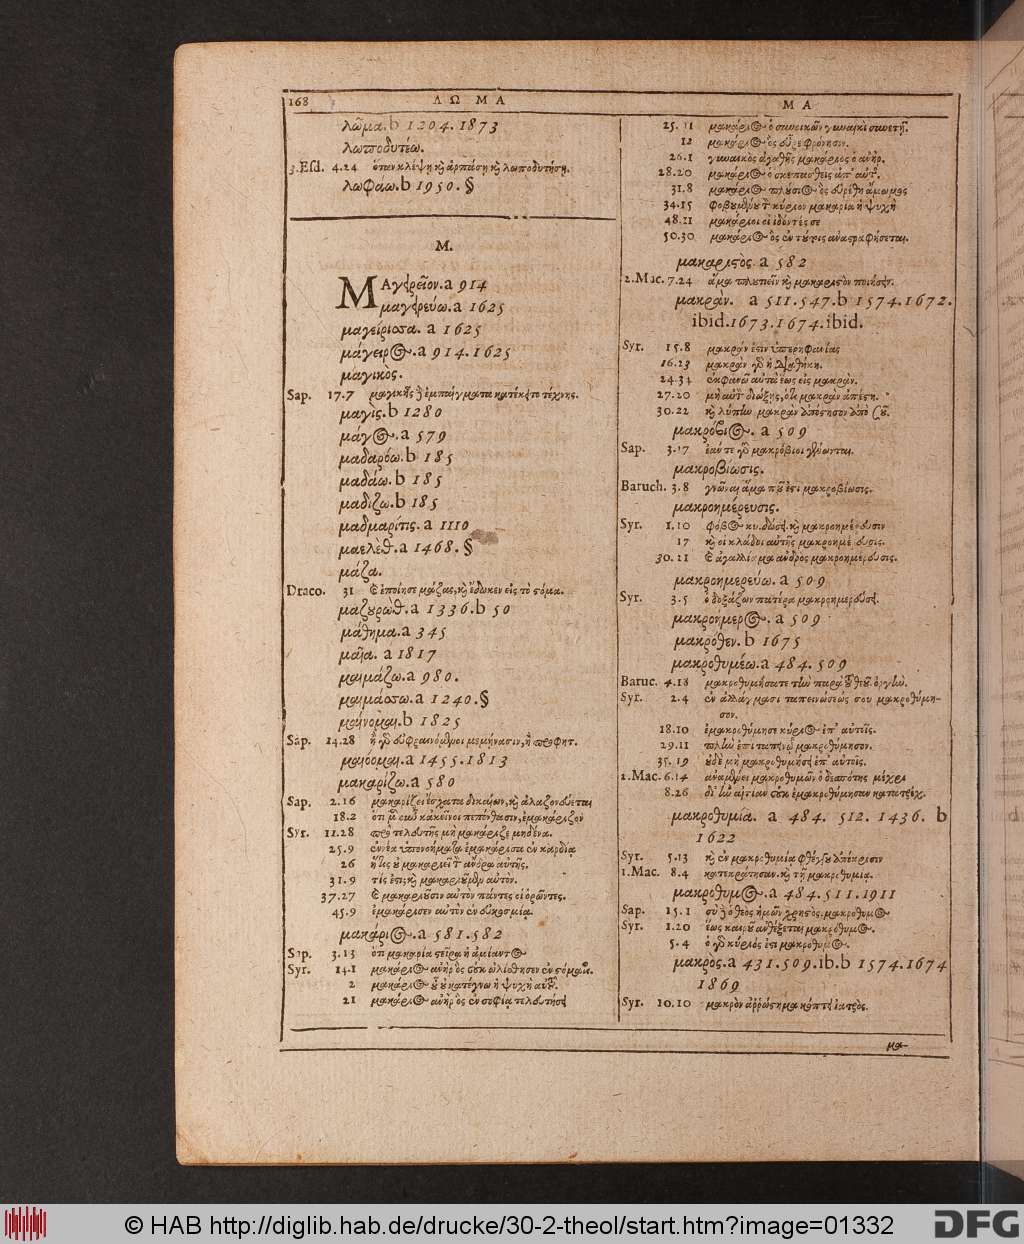 168 ΛΩ ΜΑ
λῶμα.b 1204.1873
λωποδυτέω.
3.Esd. 4.24 ὅταν κλέψῃ καὶ ἁρπάσῃ καὶ λωποδυτήσῃ.
λωφαω.b 1950.§
M.
ΜΑγειρεῖον.a 914
μαγειρεύω.a 1625
μαγείρισσα. a 1625
μάγειρος.a 914.1625
μαγικὸς.
Sap. 17.7 μαγικῆς δὲ ἐμπαίγματα κατέκειτο τέχνης.
μαγὶς.b 1280
μάγος.a 579
μαδαρόω.b 185
μαδάω.b 185
μαδίζω.b 185
μαδμαρίτις.a 1110
μαελὲθ.a 1468.§
μάζα.
Draco. 31 ἐποίησε μάζας, καὶ ἔδωκεν εἰς τὸ στόμα.
μαζουρὼθ.a 1336.b 50
μάθημα.a 345
μαῖα. a 1817
μαιμάζω.a 980.
μαιμάσσω.a 1240.§
μαίνομαι.b 1825
Sap. 14.28 ἢ γὰρ εὐφραινόμενοι μεμήνασιν, ἢ προφητ.
μαιόομαι.a 1455.1813
μακαρίζω.a 580
Sap. 2.16 μακαρίζει ἔσχατα δικαίων, καὶ ἀλαζονεύεται
18.2 ὅτι μὲν οὖν κἀκεῖνοι πεπόνθασιν, ἐμακάριζον
Syr. 11.28 πρὸ τελευτῆς μὴ μακάριζε μηδένα.
25.9 ἐννέα ὑπονοήματα ἐμακάρισα ἐν καρδίᾳ
26
31.9 τίς ἐστι; καὶ μακαριοῦμεν αὐτόν.
37.27 μακαριοῦσιν αὐτὸν πάντες οἱ ὁρῶντες.
45.9 ἐμακάρισεν αὐτὸν ἐν εὐκοσμίᾳ.
μακάριος.a 581.582
Sap. 3.13 ὅτι μακαρία στεῖρα ἡ ἀμίαντος
Syr. 14.1 μακάριος ἀνὴρ ὃς οὐκ ὠλίσθησεν ἐν στόματι.
2 μακάριος οὗ οὐ κατέγνω ἡ ψυχὴ αὐτοῦ.
21 μακάριος ἀνὴρ ὃς ἐν σοφίᾳ τελευτήσει
ΜΑ
25.11 μακάριος ὁ συνοικῶν γυναικὶ συνετῇ.
12 μακάριος ὃς εὗρε φρόνησιν.
26.1 γυναικὸς ἀγαθῆς μακάριος ὁ ἀνήρ.
28.20 μακάριος ὁ σκεπασθεὶς ἀπ' αὐτῆς.
31.8 μακάριος πλούσιος ὃς εὑρέθη ἄμωμος
34.15 φοβουμένου τὸν κύριον μακαρία ἡ ψυχὴ
48.11 μακάριοι οἱ ἰδόντές σε
50.30 μακάριος ὃς ἐν τούτοις ἀναστραφήσεται.
μακαριστός. a 582
2.Mac. 7.24 ἅμα πλουτιεῖν καὶ μακαριστὸν ποιήσειν.
μακρὰν. a 511.547.b 1574.1672.
ibid.1673.1674.ibid.
Syr. 15.8 μακράν ἐστιν ὑπερηφανίας
16.23 μακρὰν γὰρ ἡ διαθήκη.
24.34 ἐκφανῶ αὐτὰ ἕως εἰς μακράν.
27.20 μὴ αὐτὸν διώξῃς, ὅτι μακρὰν ἀπέστη.
30.22 καὶ λύπην μακρὰν ἀπόστησον ἀπὸ σοῦ.
μακρόβιος. a 509
Sap. 3.17 ἐάν τε γὰρ μακρόβιοι γένωνται.
μακροβίωσις.
Baruch. 3.8 γνῶναι ἅμα ποῦ ἐστι μακροβίωσις.
μακροημέρευσις.
Syr. 1.10 φόβος κυ. δώσει καὶ μακροημέρευσιν
17 καὶ οἱ κλάδοι αὐτῆς μακροημέρευσις.
30.21 ἀγαλλίαμα ἀνδρὸς μακροημέρευσις.
μακροημερεύω. a 509
Syr. 3.5 ὁ δοξάζων πατέρα μακροημερεύσει.
μακρονήμερος. a 509
μακρόθεν. b 1675
μακροθυμέω.a 484.509
Baruc. 4.18 μακροθυμήσατε τὴν παρὰ τοῦ θεοῦ ὀργήν.
Syr. 2.4 ἐν ἀλλάγμασι ταπεινώσεώς σου μακροθύμη-
σον.
18.10 ἐμακροθύμησε κύριος ἐπ' αὐτοῖς.
29.11 πλὴν ἐπὶ ταπεινῷ μακροθύμησον.
35.19 οὐδὲ μὴ μακροθυμήσει ἐπ' αὐτοῖς.
2.Mac. 6.14 ἀναμένει μακροθυμῶν ὁ δεσπότης μέχρι
8.26 δι' ἣν αἰτίαν οὐκ ἐμακροθύμησαν κατατρέχ.
μακροθυμία. a 484. 512. 1436. b
1622
Syr. 5.13 καὶ ἐν μακροθυμίᾳ φθέγγου ἀπόκρισιν
1.Mac. 8.4 κατεκράτησαν. καὶ τῇ μακροθυμίᾳ.
μακροθυμος.a 484.511.1911
Sap. 15.1 σὺ δὲ ὁ θεὸς ἡμῶν χρηστὸς. μακρόθυμος
Syr. 1.20 ἕως καιροῦ ἀνθέξεται μακρόθυμος.
5.4 ὁ γὰρ κύριός ἐστι μακρόθυμος.
μακρὸς.a 431.509.ib.b 1574.1674
1869
Syr. 10.10 μακρὸν ἀῤῥώστημα κόπτει ἰατρός.
μα-
© HAB http://diglib.hab.de/drucke/30-2-theol/start.htm?image=01332
DFG